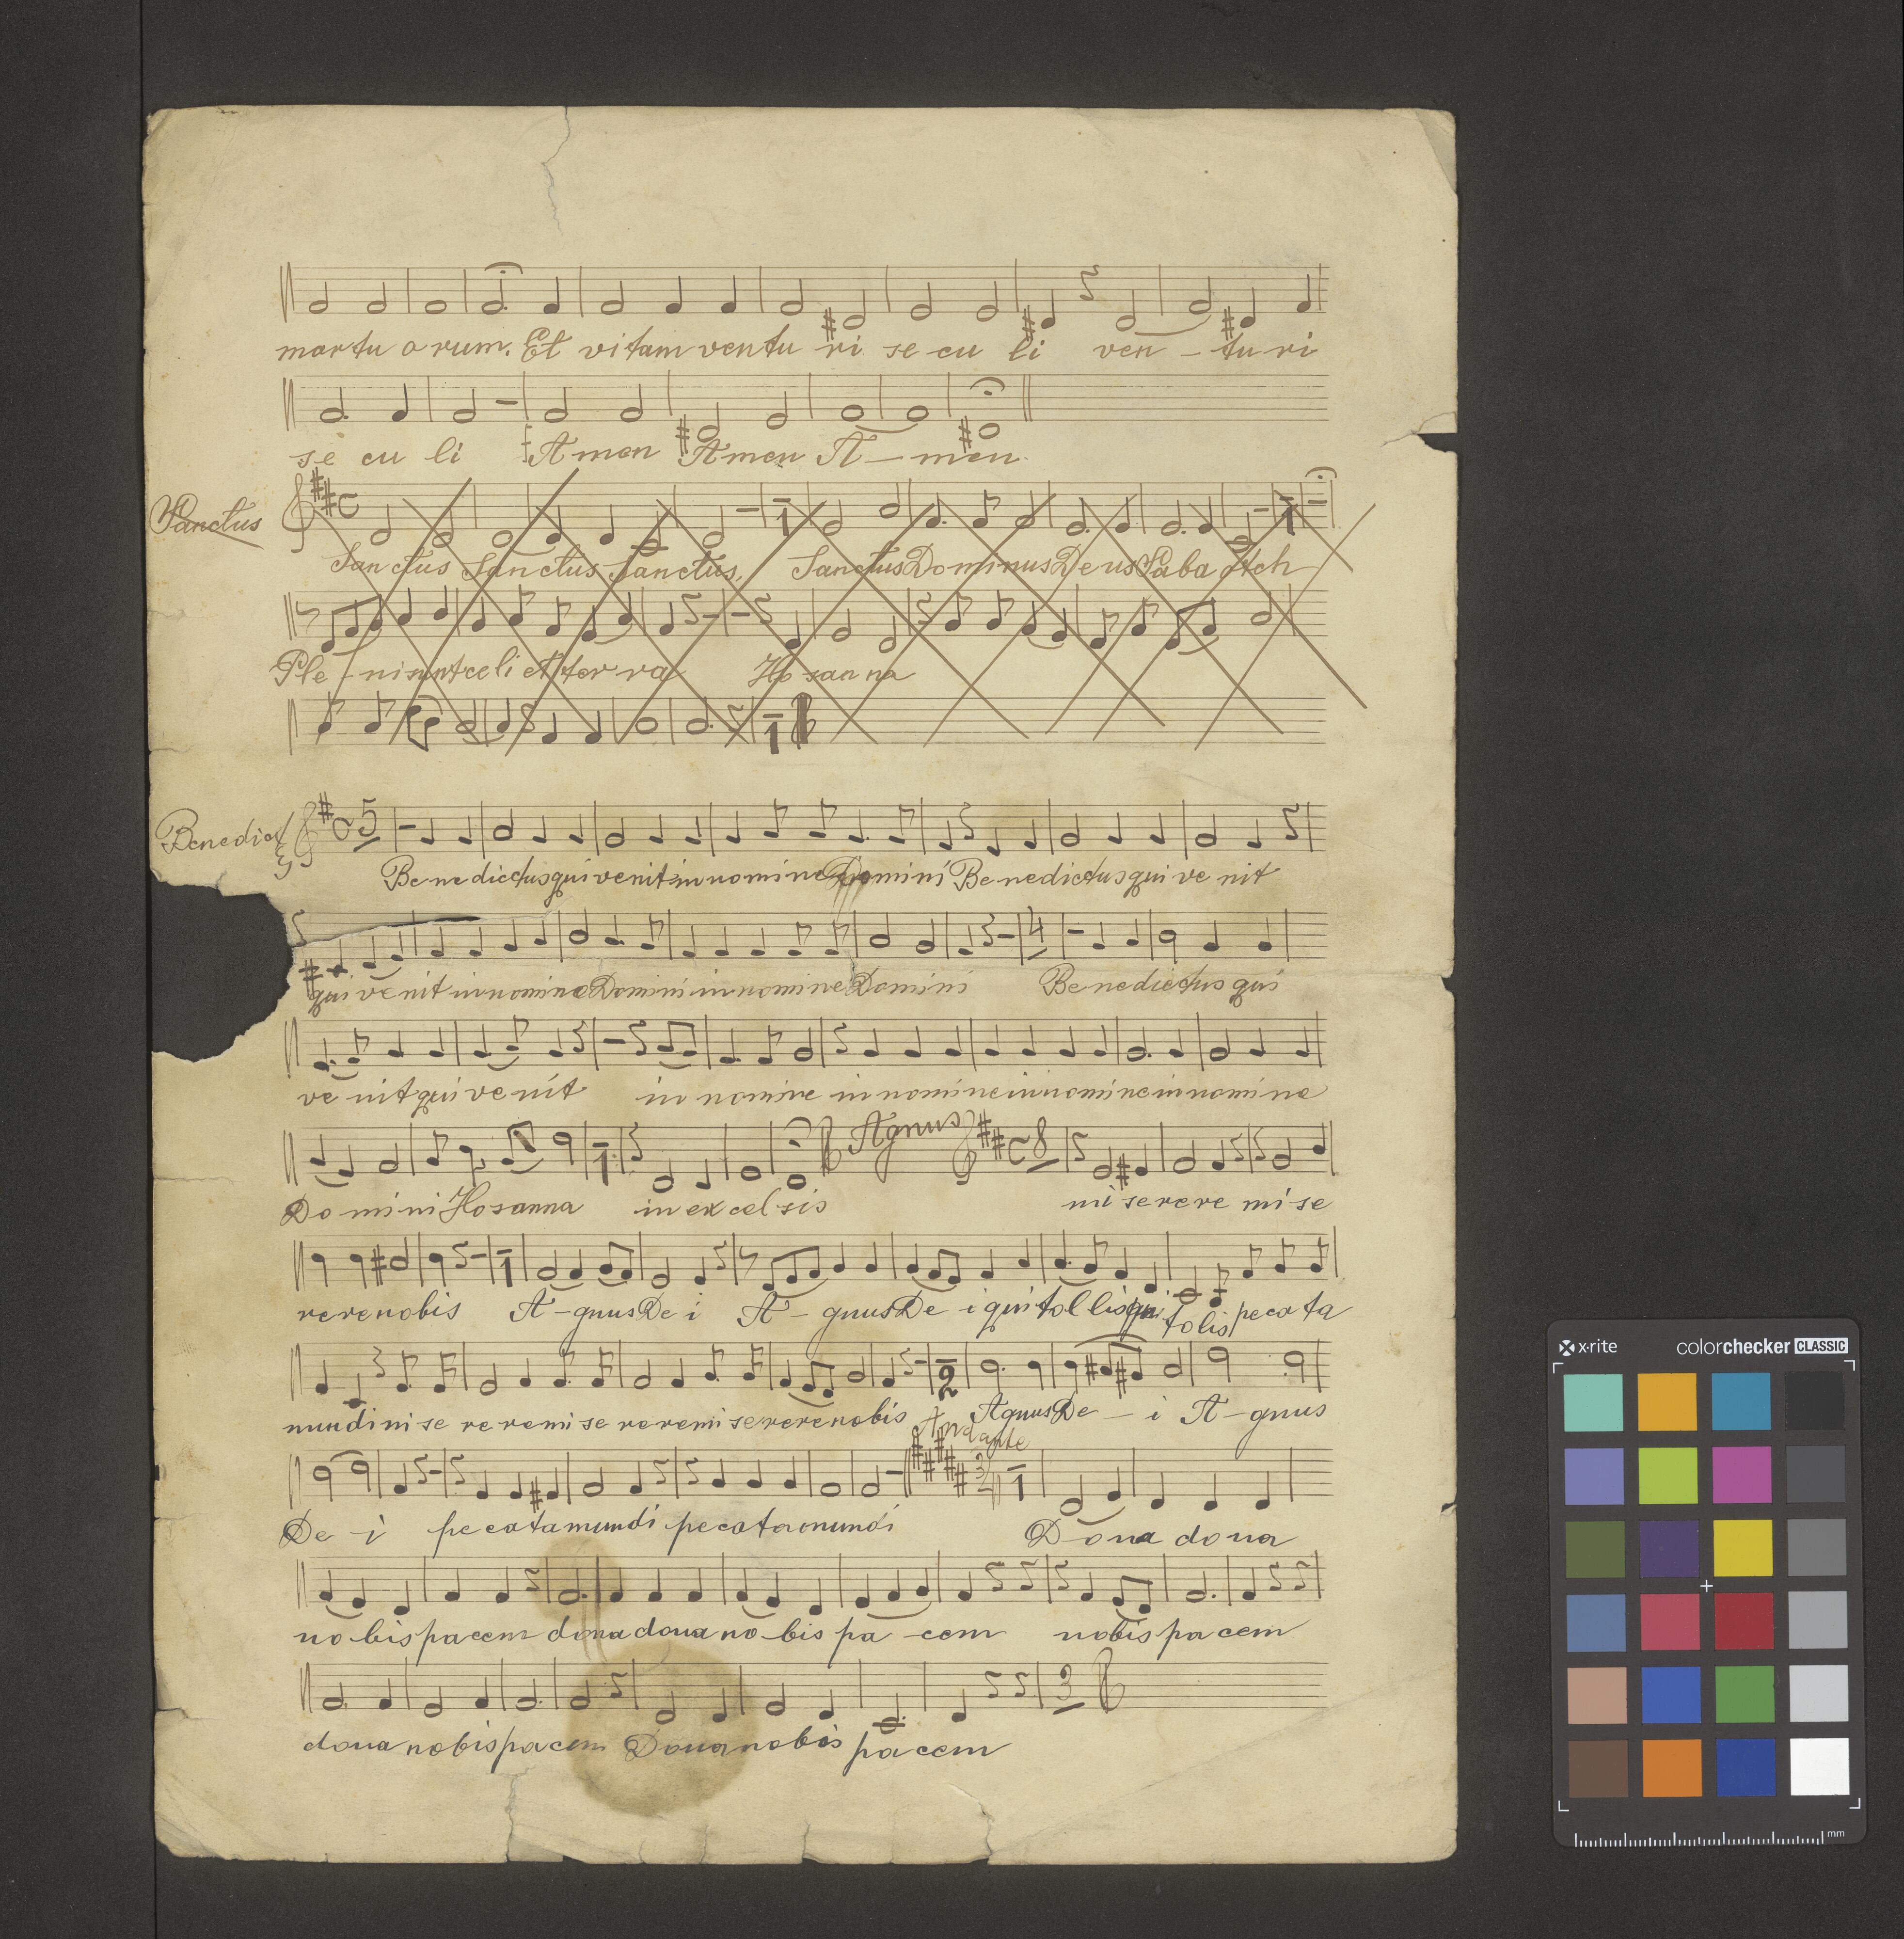 martu orum. Et vitam ventu ri se cu li ven - tu ri
se cu li Amen Amen A - men
Sanctus
Sanctus Sanctus Sanctus, Sanctus Dominus Deus Saba oth
Ple - ni sunt celi et ter ra Ho san na
Benedict
5
Be ne dictus qui venit in nomine Domini Be nedictus qui ve nit
4
qui ve nit in nomine Domini in nomine Domini Be nedictus qui
ve nit qui ve nit in nomine in nomine in nomine in nomine
1 Agnus 8
Do mini Hosanna in ex cel sis mi se re re mi se
1
rere nobis A - gnus De i A - gnus De i qui tol lis qui tolis pecata
2
mundi mi se re re mi se re re mi se rere nobis Agnus De - i A - gnus
Andante
3/4 1
De - i pecata mundi pecata mundi Dona dona
no bis pacem dona dona no - bis pa cem nobis pa cem
3
dona nobis pacem Dona nobis pacem
x·rite colorchecker CLASSIC
mm